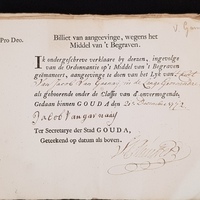 Pro Deo.
Billiet van aangeevinge, wegens het
Middel van 't Begraven.
Ik ondergeschreve verklaare by dezen, ingevolge
van de Ordonnantie op 't Middel van 't Begraven
geëmaneert, aangeevinge te doen van het Lyk van
Van Jacob Van in de
als gehoorende onder de Classis van d' onvermogende,
Gedaan binnen GOUDA, den 20 December 177
Jacob Vangarnaay
Ter Secretarye der Stad GOUDA,
Geteekend op datum als boven.